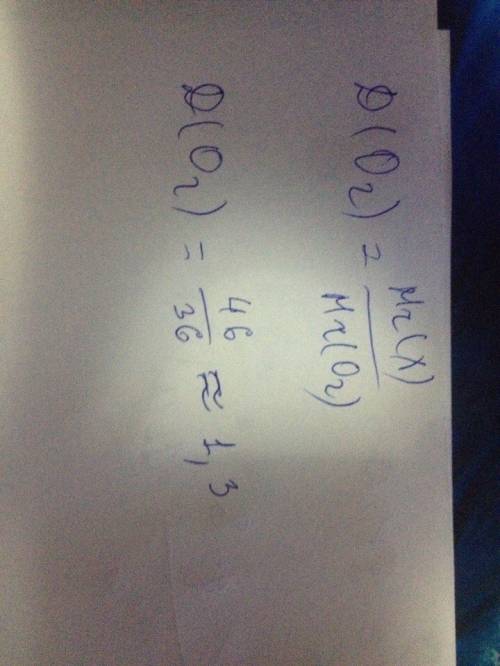 D(O₂) = Mr(X) / Mr(O₂)
D(O₂) = 46 / 36 ≈ 1,3